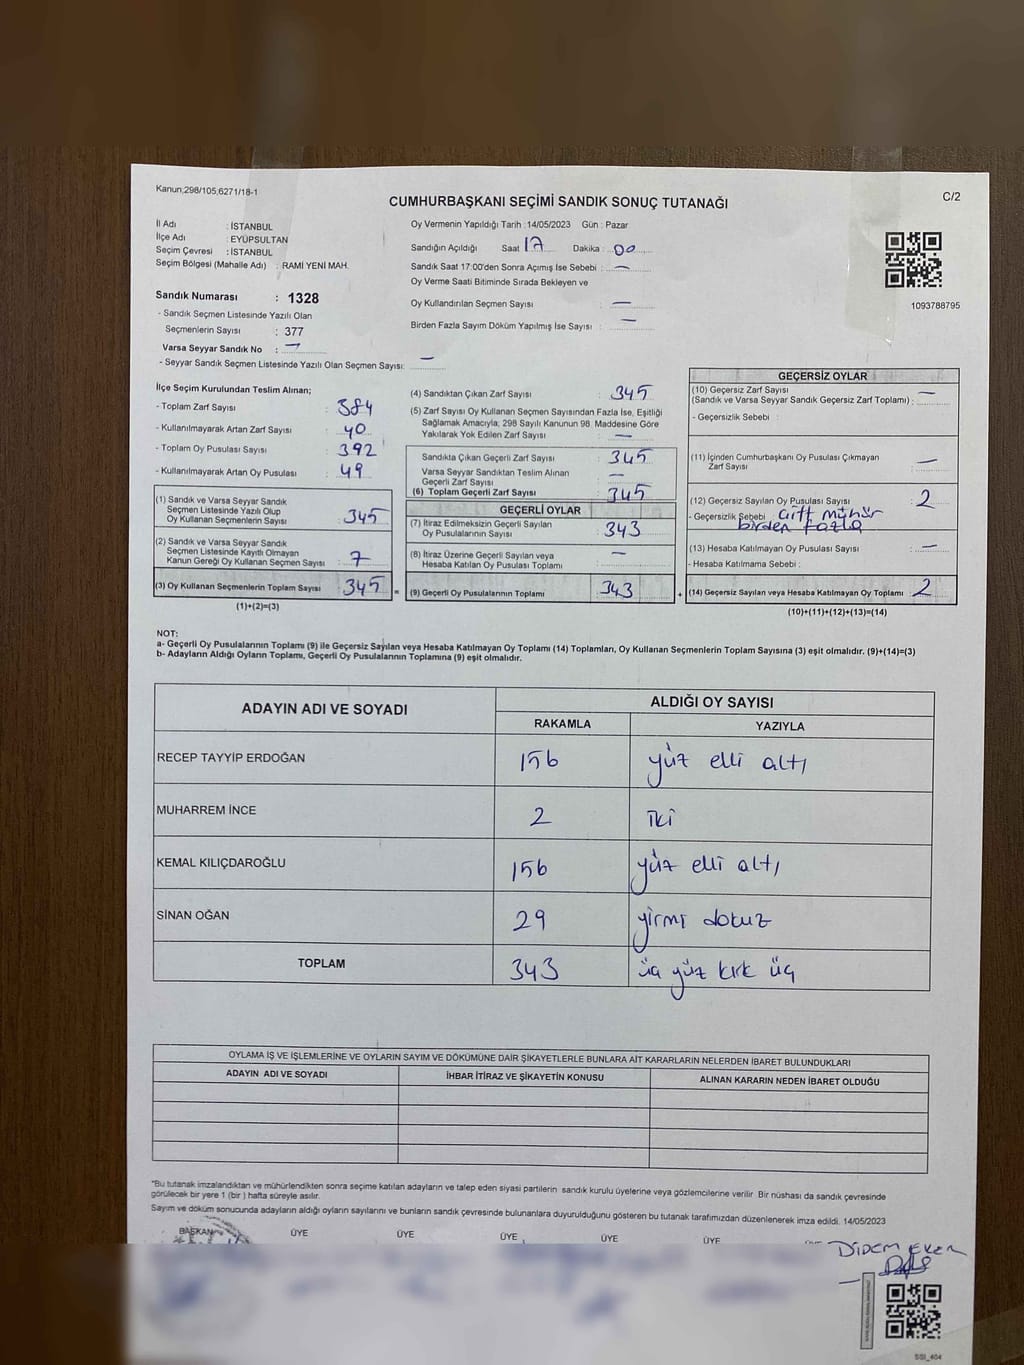 Kanun;298/105,6271/18-1
CUMHURBAŞKANI SEÇİMİ SANDIK SONUÇ TUTANAĞI
C/2
İl Adı : İSTANBUL
İlçe Adı : EYÜPSULTAN
Seçim Çevresi : İSTANBUL
Seçim Bölgesi (Mahalle Adı) : RAMİ YENİ MAH.
Oy Vermenin Yapıldığı Tarih : 14/05/2023 Gün : Pazar
Sandığın Açıldığı Saat 17 Dakika : 00
Sandık Saat 17:00'den Sonra Açımış İse Sebebi : —
Oy Verme Saati Bitiminde Sırada Bekleyen ve
Oy Kullandırılan Seçmen Sayısı : —
Birden Fazla Sayım Döküm Yapılmış İse Sayısı : —
1093788795
Sandık Numarası : 1328
- Sandık Seçmen Listesinde Yazılı Olan
Seçmenlerin Sayısı : 377
Varsa Seyyar Sandık No : —
- Seyyar Sandık Seçmen Listesinde Yazılı Olan Seçmen Sayısı: —
İlçe Seçim Kurulundan Teslim Alınan;
- Toplam Zarf Sayısı : 384
- Kullanılmayarak Artan Zarf Sayısı : 40
- Toplam Oy Pusulası Sayısı : 392
- Kullanılmayarak Artan Oy Pusulası : 49
(1) Sandık ve Varsa Seyyar Sandık
Seçmen Listesinde Yazılı Olup
Oy Kullanan Seçmenlerin Sayısı : 345
(2) Sandık ve Varsa Seyyar Sandık
Seçmen Listesinde Kayıtlı Olmayan
Kanun Gereği Oy Kullanan Seçmen Sayısı : 7
(3) Oy Kullanan Seçmenlerin Toplam Sayısı : 345
(1)+(2)=(3)
(4) Sandıktan Çıkan Zarf Sayısı : 345
(5) Zarf Sayısı Oy Kullanan Seçmen Sayısından Fazla İse, Eşitliği
Sağlamak Amacıyla; 298 Sayılı Kanunun 98. Maddesine Göre
Yakılarak Yok Edilen Zarf Sayısı : —
Sandıkta Çıkan Geçerli Zarf Sayısı : 345
Varsa Seyyar Sandıktan Teslim Alınan
Geçerli Zarf Sayısı : —
(6) Toplam Geçerli Zarf Sayısı : 345
GEÇERLİ OYLAR
(7) İtiraz Edilmeksizin Geçerli Sayılan
Oy Pusulalarının Sayısı : 343
(8) İtiraz Üzerine Geçerli Sayılan veya
Hesaba Katılan Oy Pusulası Toplamı : —
= (9) Geçerli Oy Pusulalarının Toplamı : 343
GEÇERSİZ OYLAR
(10) Geçersiz Zarf Sayısı
(Sandık ve Varsa Seyyar Sandık Geçersiz Zarf Toplamı) : —
- Geçersizlik Sebebi :
(11) İçinden Cumhurbaşkanı Oy Pusulası Çıkmayan
Zarf Sayısı : —
(12) Geçersiz Sayılan Oy Pusulası Sayısı : 2
- Geçersizlik Sebebi : çift mühür
birden fazla
(13) Hesaba Katılmayan Oy Pusulası Sayısı : —
- Hesaba Katılmama Sebebi :
+ (14) Geçersiz Sayılan veya Hesaba Katılmayan Oy Toplamı : 2
(10)+(11)+(12)+(13)=(14)
NOT:
a- Geçerli Oy Pusulalarının Toplamı (9) ile Geçersiz Sayılan veya Hesaba Katılmayan Oy Toplamı (14) Toplamları, Oy Kullanan Seçmenlerin Toplam Sayısına (3) eşit olmalıdır. (9)+(14)=(3)
b- Adayların Aldığı Oyların Toplamı, Geçerli Oy Pusulalarının Toplamına (9) eşit olmalıdır.
ADAYIN ADI VE SOYADI
ALDIĞI OY SAYISI
RAKAMLA YAZIYLA
RECEP TAYYİP ERDOĞAN 156 yüz elli altı
MUHARREM İNCE 2 iki
KEMAL KILIÇDAROĞLU 156 yüz elli altı
SİNAN OĞAN 29 yirmi dokuz
TOPLAM 343 üç yüz kırk üç
OYLAMA İŞ VE İŞLEMLERİNE VE OYLARIN SAYIM VE DÖKÜMÜNE DAİR ŞİKAYETLERLE BUNLARA AİT KARARLARIN NELERDEN İBARET BULUNDUKLARI
ADAYIN ADI VE SOYADI İHBAR İTİRAZ VE ŞİKAYETİN KONUSU ALINAN KARARIN NEDEN İBARET OLDUĞU
"Bu tutanak imzalandıktan ve mühürlendikten sonra seçime katılan adayların ve talep eden siyasi partilerin sandık kurulu üyelerine veya gözlemcilerine verilir Bir nüshası da sandık çevresinde
görülecek bir yere 1 (bir ) hafta süreyle asılır.
Sayım ve döküm sonucunda adayların aldığı oyların sayılarını ve bunların sandık çevresinde bulunanlara duyurulduğunu gösteren bu tutanak tarafımızdan düzenlenerek imza edildi. 14/05/2023
BAŞKAN ÜYE ÜYE ÜYE ÜYE ÜYE
DİDEM EKER
SSI_404